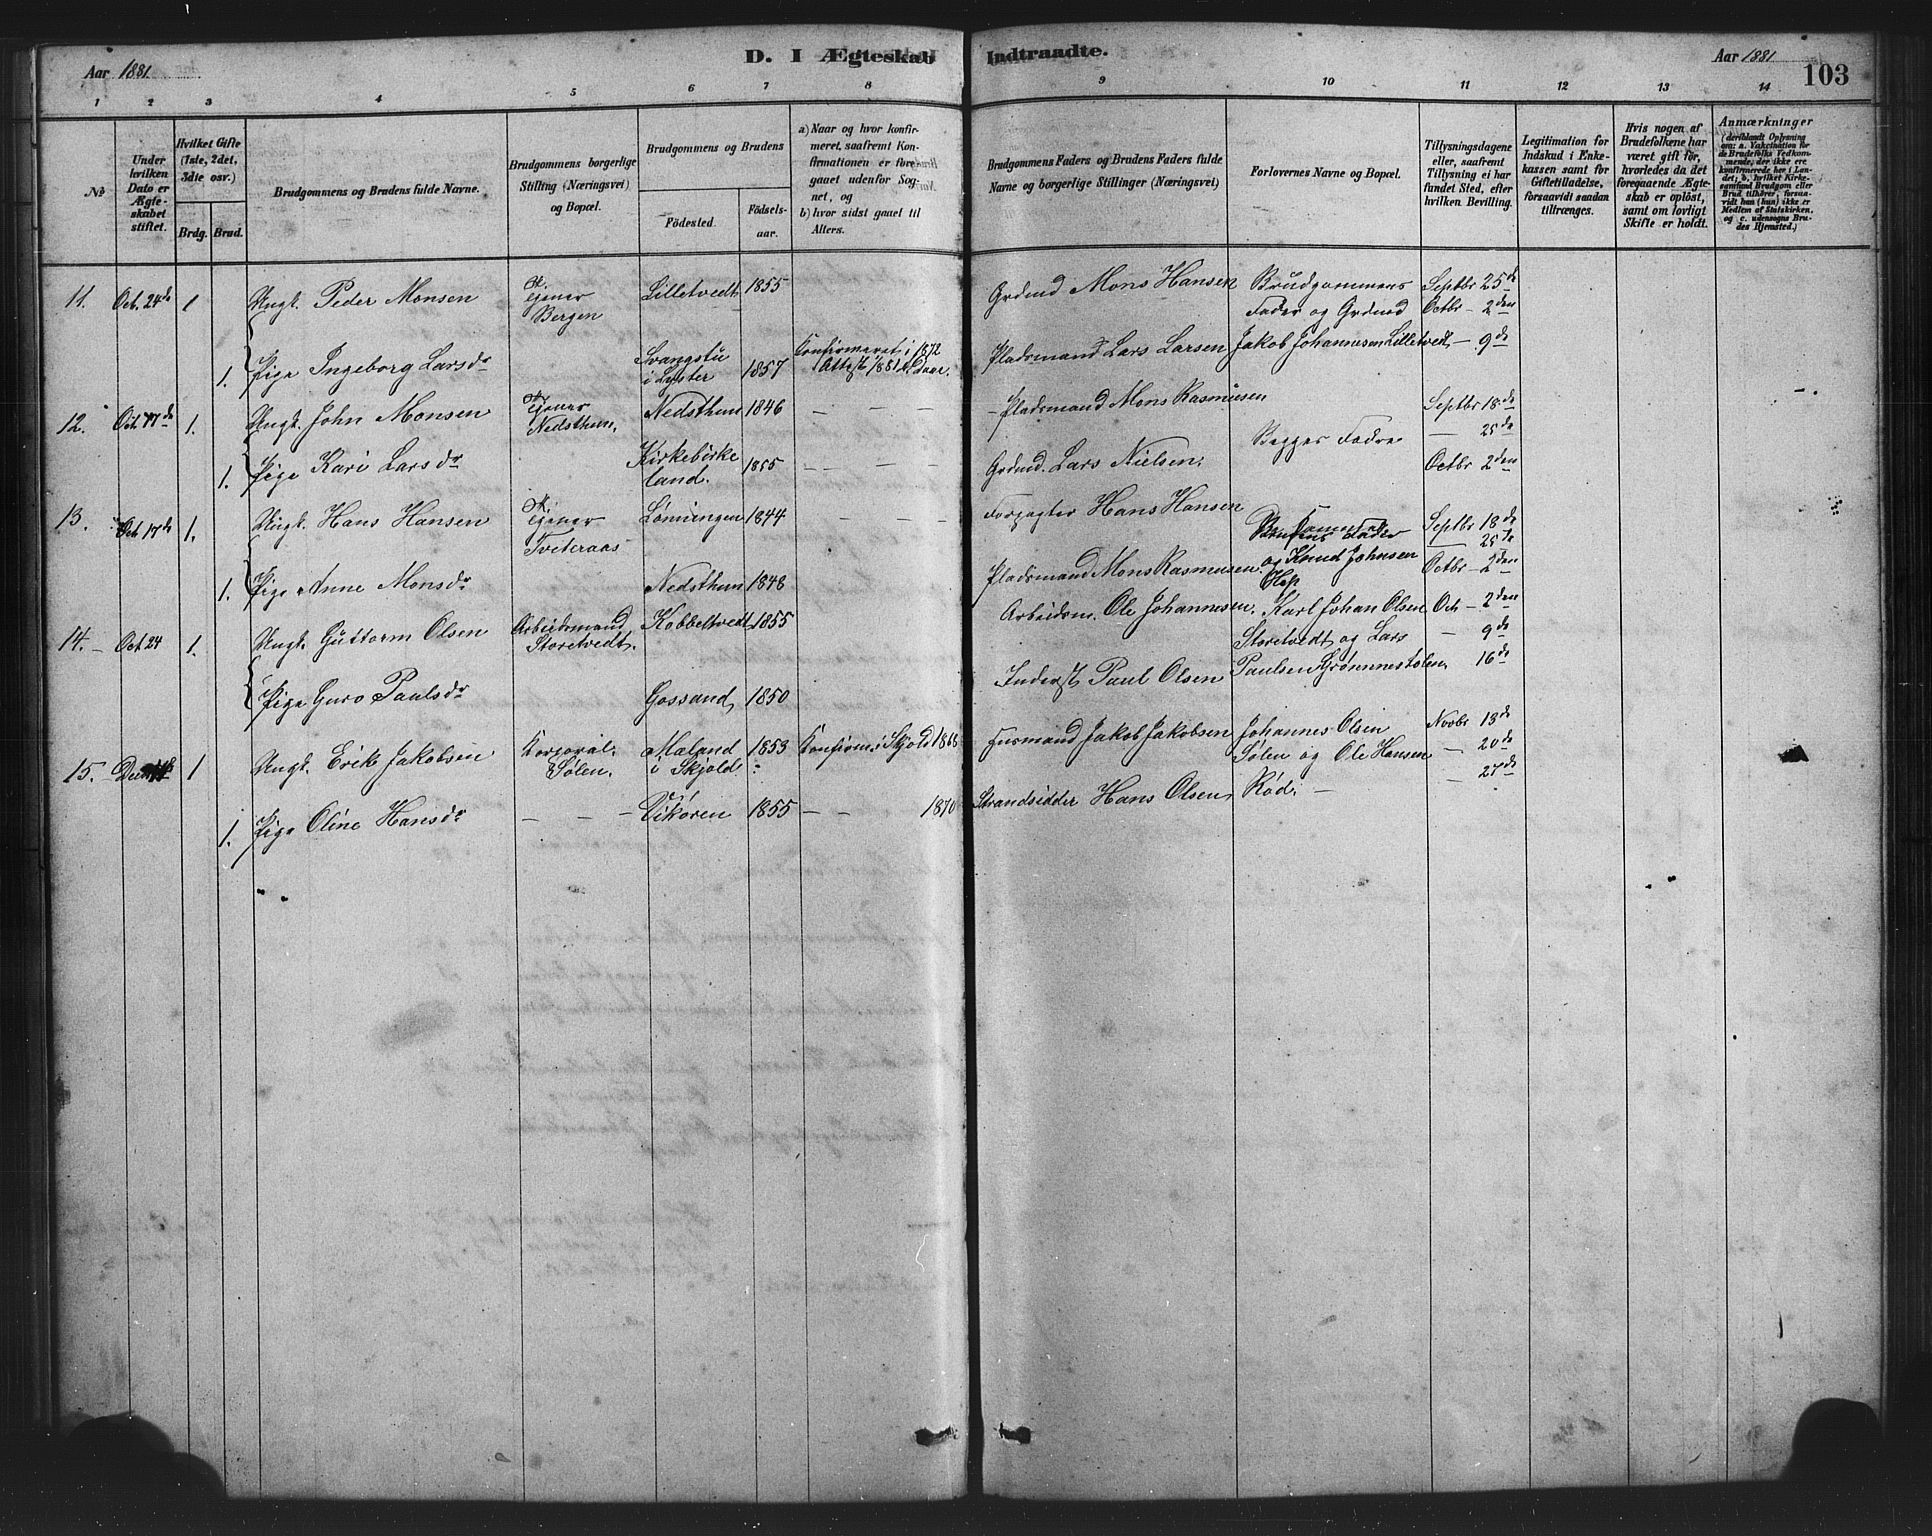 Aar 1881.
D. I Ægteskab
Indtraadte.
Aar 1881
103
1 2 3 4 5 6 7 8 9 10 11 12 13 14
No
Under hvilken Dato er Ægteskabet stiftet.
Hvilket Gifte (1ste, 2det, 3die osv.)
Brdg. Brud.
Brudgommens og Brudens fulde Navne.
Brudgommens borgerlige Stilling (Næringsvei) og Bopæl.
Brudgommens og Brudens
Födested.
Födselsaar.
a) Naar og hvor konfirmeret, saafremt Konfirmationen er foregaaet udenfor Sognet, og
b) hvor sidst gaaet til Alters.
Brudgommens Faders og Brudens Faders fulde Navne og borgerlige Stillinger (Næringsvei)
Forlovernes Navne og Bopæl.
Tillysningsdagene eller, saafremt Tillysning ei har fundet Sted, efter hvilken Bevilling.
Legitimation for Indskud i Enkekassen samt for Giftetilladelse, forsaavidt saadan tiltrænges.
Hvis nogen af Brudefolkene har været gift før, hvorledes da det foregaaende Ægteskab er opløst, samt om lovligt Skifte er holdt.
Anmærkninger (deriblandt Oplysning om: a. Vakcination for de Brudefolks Vedkommende, der ikke ere konfirmerede her i Landet; b. hvilket Kirkesamfund Brudgom eller Brud tilhører, forsaavidt han (hun) ikke er Medlem af Statskirken, og c. udensogns Brudes Hjemsted.)
11. Oct. 24de 1 Ungk. Peder Monsen Tjener Bergen Lilletvedt 1855 Grdmd Mons Hansen Brudgommens Fader og Grdmd Septbr 25de Octbr – 2den
1. Pige Ingeborg Larsdr Svangstu i Lyster 1857 Konfirmeret i 1872 Attest 1881 Pladsmand Lars Larsen Jakob Johannesen Lilletvedt – 9de
12. Oct. 17de 1. Ungk. John Monsen Tjener Nedsthun. Nedsthun 1846 – – – – Pladsmand Mons Rasmusen Begges Fædre Septbr 18de – 25de
1. Pige Kari Larsdr Kirkebirkeland. 1855 – – – – Grdmd. Lars Nielsen. Octbr 2den
13. Oct 17de 1. Ungk. Hans Hansen Tjener Tveteraas Lönningen 1844 – – – Forpagter Hans Hansen Fader Septbr 18de – 25de
1. Pige Anne Monsdr Nedsthun 1848 Pladsmand Mons Rasmusen og Knud Johnsen Hop Octbr – 2den
14. – Oct 24 1. Ungk. Guttorm Olsen Arbeidsmand Storetvedt. Kobbeltvedt 1855 Arbeidsm. Ole Johannesen. Karl Johan Olsen Storetvedt og Lars Oct – 2den – 9de
Pige Guro Paulsdr Gossand 1850 Inderst Paul Olsen Paulsen Grönnestölen – 16de
15. 1 Ungk. Erik Jakobsen Korporal. Sølen. Maland i Skjold 1853 Konfirm. i Skjold 1868 Husmand Jakob Jakobsen Johannes Olsen Sølen og Ole Hansen Rød. – Novbr 13de – 20de – 27de
1. Pige Oline Hansdr – – – Vikören 1855 – – 1870 Strandsidder Hans Olsen